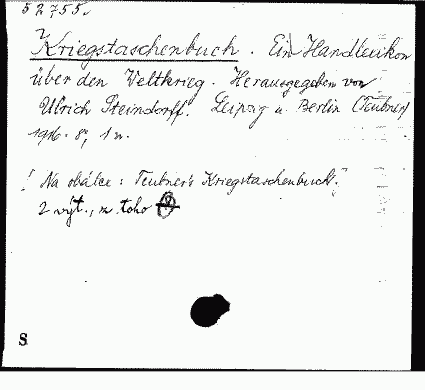 52755.
Kriegstaschenbuch. Ein Handlexikon
über den Weltkrieg. Herausgegeben von
Ulrich Steindorff. Leipzig u. Berlin (Teubner)
1916. 8°, 1 n.
! Na obálce: Teubner's Kriegstaschenbuch.
2 výt., z toho
S